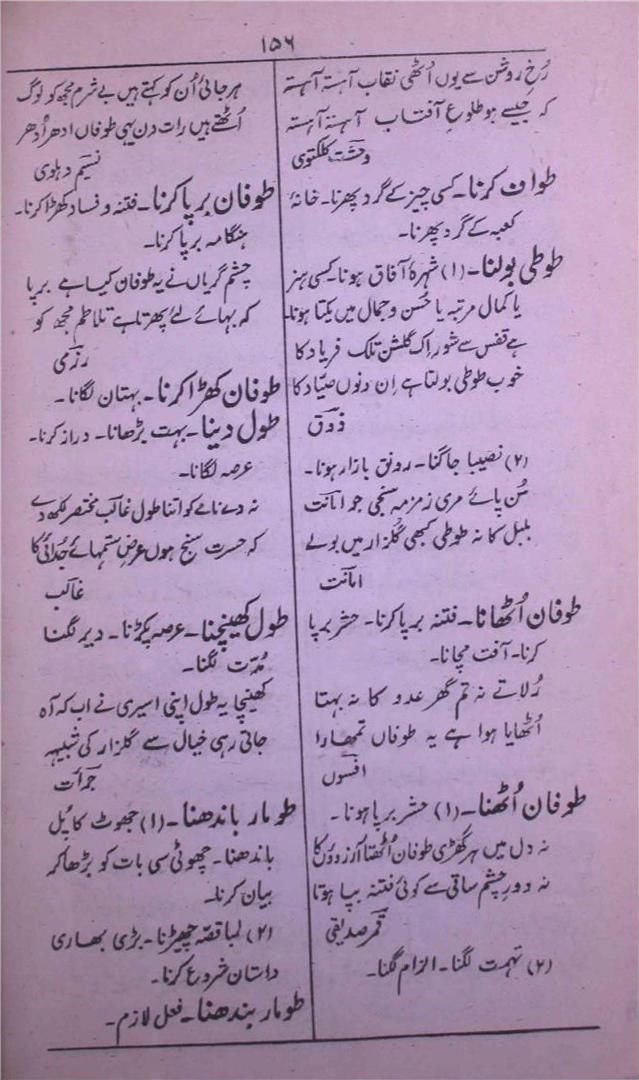 ۱۵۶
رُخِ روشن سے یوں اُٹھی نقاب آہستہ آہستہ
کہ جیسے ہو طلوعِ آفتاب آہستہ آہستہ
وحشت کلکتوی
طواف کرنا۔ کسی چیز کے گرد پھرنا۔ خانۂ
کعبہ کے گرد پھرنا۔
طوطی بولنا۔ (۱) شہرۂ آفاق ہونا۔ کسی ہنر
یا کمال مرتبہ یا حُسن و جمال میں یکتا ہونا۔
ہے قفس سے شور اِک گلشن تلک فریاد کا
خوب طوطی بولتا ہے اِن دنوں صیّاد کا
ذوق
(۲) نصیبا جاگنا۔ رونق بازار ہونا۔
سُن پائے مری زمزمہ سنجی جو امانت
بلبل کا نہ طوطی کبھی گلزار میں بولے
امانت
طوفان اُٹھانا۔ فتنہ برپا کرنا۔ حشر برپا
کرنا۔ آفت مچانا۔
رُلاتے نہ تم گھر عدو کا نہ بہتا
اُٹھایا ہوا ہے یہ طوفاں تمھارا
افسوں
طوفان اُٹھنا۔ (۱) حشر برپا ہونا۔
نہ دل میں ہر گھڑی طوفان اُٹھتا آرزوؤں کا
نہ دورِ چشم ساقی سے کوئی فتنہ بپا ہوتا
قمر صدیقی
(۲) تہمت لگنا۔ الزام لگنا۔
ہرجائی اُن کو کہتے ہیں بے شرم مجھ کو لوگ
اُٹھتے ہیں رات دن یہی طوفاں ادھر اُدھر
نسیم دہلوی
طوفان برپا کرنا۔ فتنہ و فساد کھڑا کرنا۔
ہنگامہ برپا کرنا۔
چشم گریاں نے یہ طوفان کیا ہے برپا
کہ بہائے لئے پھرتا ہے تلاطم مجھ کو
رزمی
طوفان کھڑا کرنا۔ بہتان لگانا۔
طول دینا۔ بہت بڑھانا۔ دراز کرنا۔
عرصہ لگانا۔
نہ دے نامے کو اتنا طول غالب مختصر لکھ دے
کہ حسرت سنج ہوں عرضِ ستمہائے جدائی کا
غالب
طول کھینچنا۔ عرصہ پکڑنا۔ دیر لگنا
مُدّت لگنا۔
کھینچا یہ طول اپنی اسیری نے اب کہ آہ
جاتی رہی خیال سے گلزار کی شبیہہ
جرأت
طومار باندھنا۔ (۱) جھوٹ کا پُل
باندھنا۔ چھوٹی سی بات کو بڑھا کر
بیان کرنا۔
(۲) لمبا قصّہ چھیڑنا۔ بڑی بھاری
داستان شروع کرنا۔
طومار بندھنا۔ فعل لازم۔